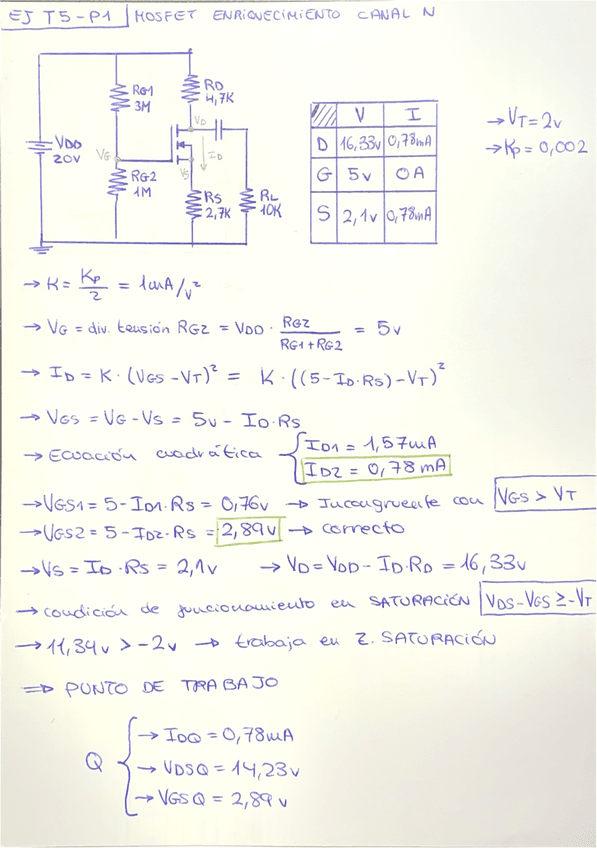 EJ T5-P1 | MOSFET ENRIQUECIMIENTO CANAL N
RG1
3M
RD
4,7K
VD
VDD
20V
VG
ID
VS
RG2
1M
RS
2,7K
RL
10K
V I
D 16,33v 0,78mA
G 5v 0A
S 2,1v 0,78mA
→ VT = 2v
→ Kp = 0,002
→ K = Kp/2 = 1mA/v²
→ VG = div. tensión RG2 = VDD · RG2/(RG1+RG2) = 5v
→ ID = K · (VGS - VT)² = K · ((5 - ID·RS) - VT)²
→ VGS = VG - VS = 5v - ID·RS
→ Ecuación cuadrática { ID1 = 1,57mA
ID2 = 0,78mA
→ VGS1 = 5 - ID1·RS = 0,76v → Incongruente con VGS > VT
→ VGS2 = 5 - ID2·RS = 2,89v → correcto
→ VS = ID·RS = 2,1v → VD = VDD - ID·RD = 16,33v
→ condición de funcionamiento en SATURACIÓN VDS - VGS ≥ -VT
→ 11,34v > -2v → trabaja en Z. SATURACIÓN
⇒ PUNTO DE TRABAJO
Q { → IDQ = 0,78mA
→ VDSQ = 14,23v
→ VGSQ = 2,89v